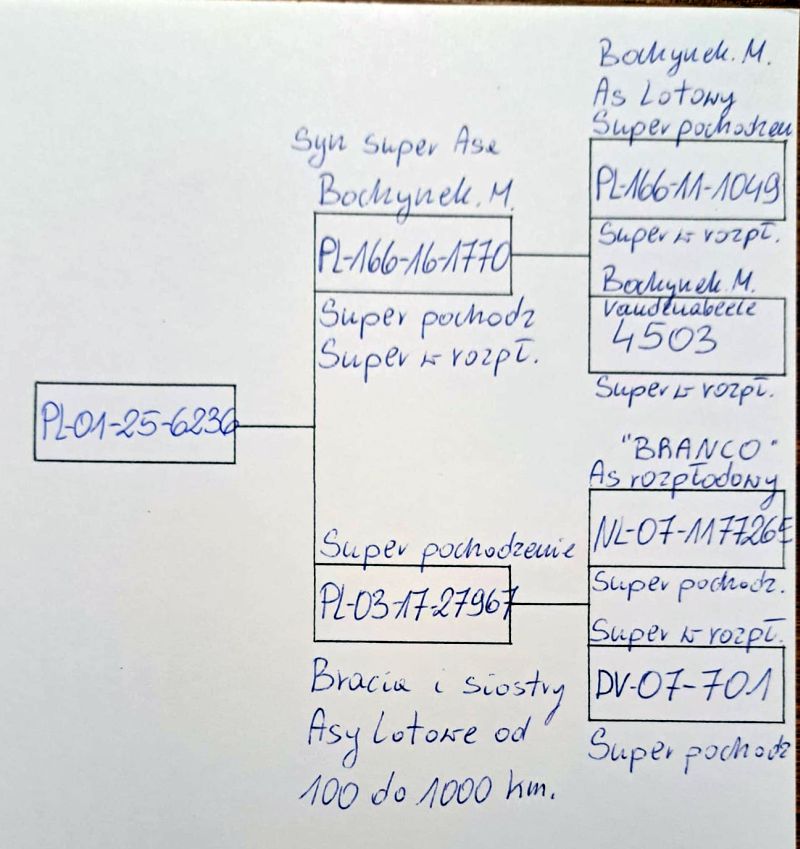 PL-01-25-6236
Syn Super Asa
Bochynek. M.
PL-166-16-1770
Super pochodz
Super w rozpł.
Super pochodzenie
PL-03-17-27967
Bracia i siostry
Asy Lotowe od
100 do 1000 km.
Bochynek. M.
As Lotowy
Super pochodzen
PL-166-11-1049
Super w rozpł.
Bochynek M.
Vandenabeele
4503
Super w rozpł.
"BRANCO"
As rozpłodowy
NL-07-1177265
Super pochodz.
Super w rozpł.
DV-07-701
Super pochodz